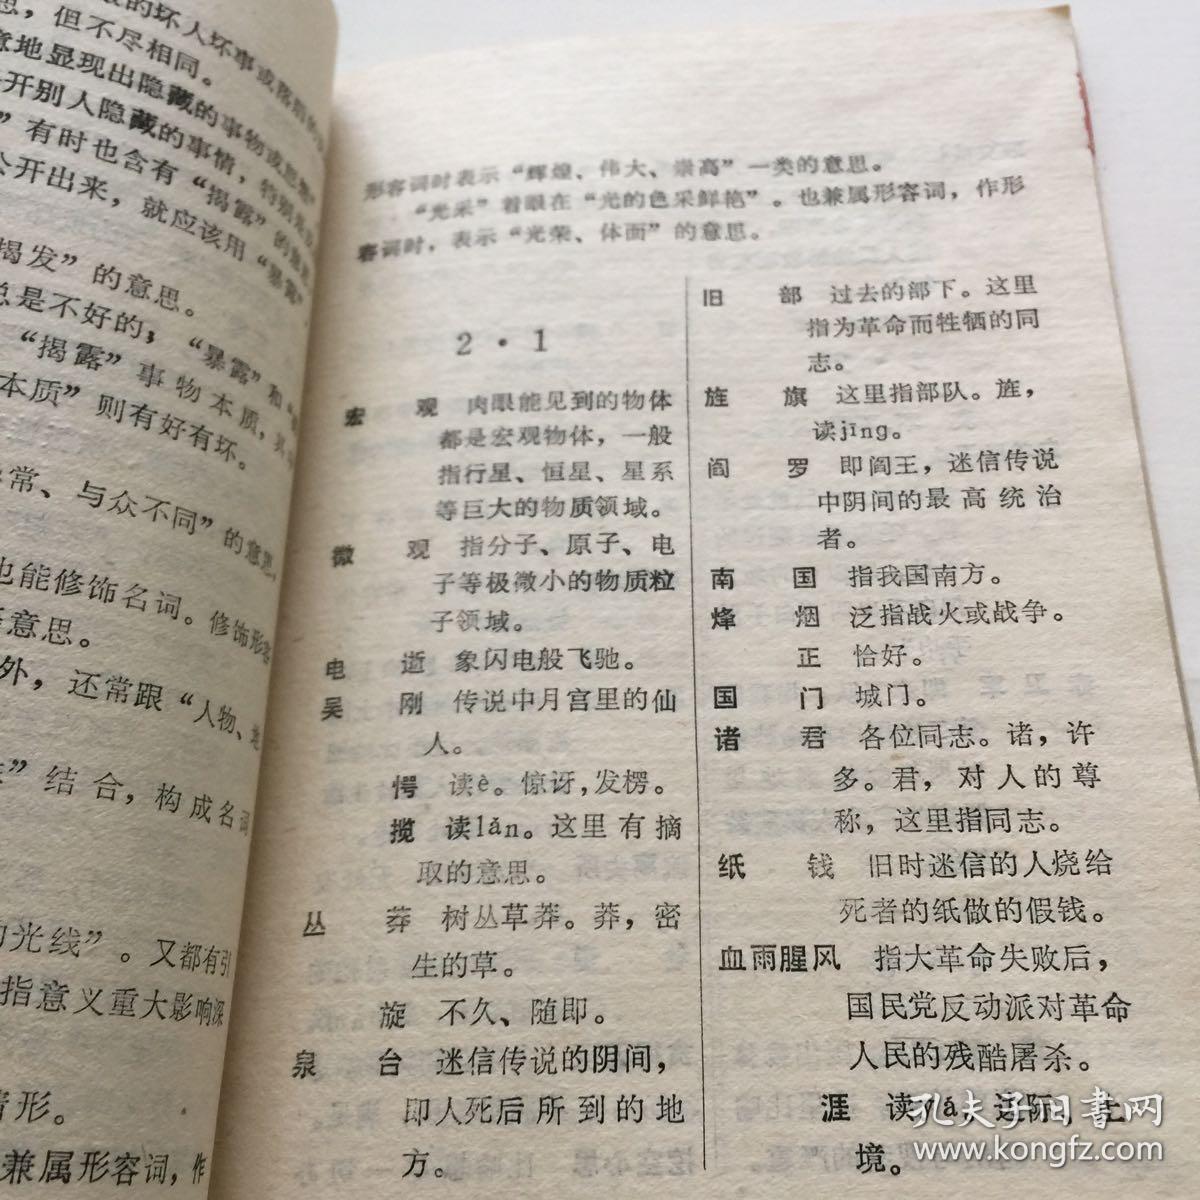 的坏人坏事或落后的
思，但不尽相同。
意地显现出隐藏的事物或思想
开别人隐藏的事情，特别是
”有时也含有“揭露”的意思
公开出来，就应该用“暴露”
揭发”的意思。
总是不好的；“暴露”和“
“揭露”事物本质，
本质”则有好有坏。
常、与众不同”的意思，
也能修饰名词。修饰形容
意思。
外，还常跟“人物、
”结合，构成名词
的光线”。又都有引
指意义重大影响深
情形。
兼属形容词，作
形容词时表示“辉煌、伟大、崇高”一类的意思。
“光采”着眼在“光的色采鲜艳”。也兼属形容词，作形
容词时，表示“光荣、体面”的意思。
2·1
宏观 肉眼能见到的物体
都是宏观物体，一般
指行星、恒星、星系
等巨大的物质领域。
微观 指分子、原子、电
子等极微小的物质粒
子领域。
电逝 象闪电般飞驰。
吴刚 传说中月宫里的仙
人。
愕 读è。惊讶，发楞。
揽 读lǎn。这里有摘
取的意思。
丛莽 树丛草莽。莽，密
生的草。
旋 不久、随即。
泉台 迷信传说的阴间，
即人死后所到的地
方。
旧部 过去的部下。这里
指为革命而牲牺的同
志。
旌旗 这里指部队。旌，
读jīng。
阎罗 即阎王，迷信传说
中阴间的最高统治
者。
南国 指我国南方。
烽烟 泛指战火或战争。
正 恰好。
国门 城门。
诸君 各位同志。诸，许
多。君，对人的尊
称，这里指同志。
纸钱 旧时迷信的人烧给
死者的纸做的假钱。
血雨腥风 指大革命失败后，
国民党反动派对革命
人民的残酷屠杀。
涯 读yá，边际，土
境。
孔夫子旧书网
www.kongfz.com